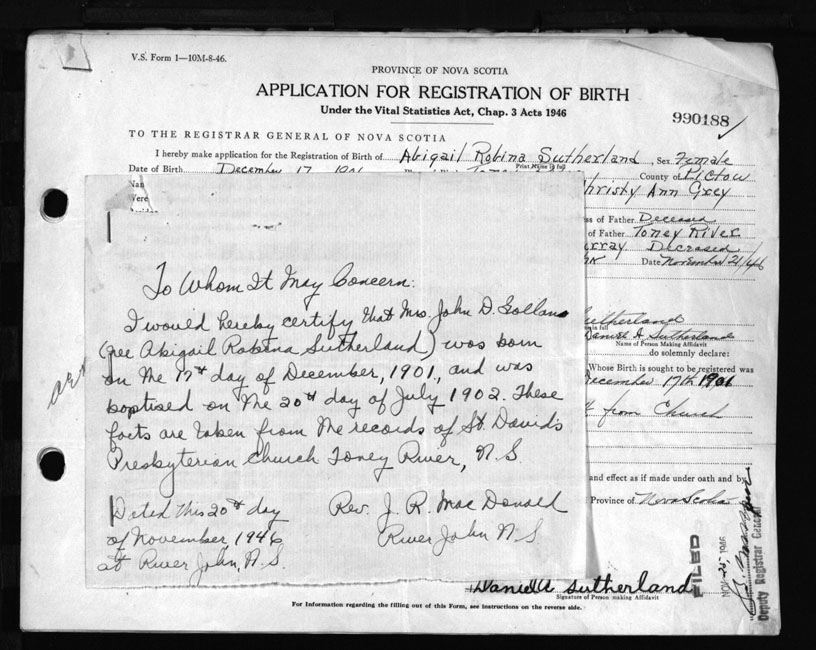 V.S. Form 1—10M-8-46.
PROVINCE OF NOVA SCOTIA
APPLICATION FOR REGISTRATION OF BIRTH
Under the Vital Statistics Act, Chap. 3 Acts 1946
990188
TO THE REGISTRAR GENERAL OF NOVA SCOTIA
I hereby make application for the Registration of Birth of Abigail Robina Sutherland, Sex Female
Print Name in full
Date of Birth December 17, County of Pictou
Christy Ann Grey
Were
of Father Deceased
of Father Toney River
Deceased
Date November 21/46
To Whom It May Concern:
I would hereby certify that Mrs. John D.
(nee Abigail Robena Sutherland) was born
on the 17th day of December, 1901, and was
baptised on the 20th day of July 1902. These
facts are taken from the records of St. David's
Presbyterian Church Toney River, N.S.
Dated this 20th day
of November, 1946
at River John, N.S.
Rev. J. R. MacDonald
River John N.S.
Sutherland
in full
Daniel A Sutherland
Name of Person Making Affidavit
do solemnly declare:
Whose Birth is sought to be registered was
December 17th 1901
from Church
and effect as if made under oath and by
Province of Nova Scotia
FILED
Deputy Registrar General
Daniel A Sutherland
Signature of Person making Affidavit
For Information regarding the filling out of this Form, see instructions on the reverse side.